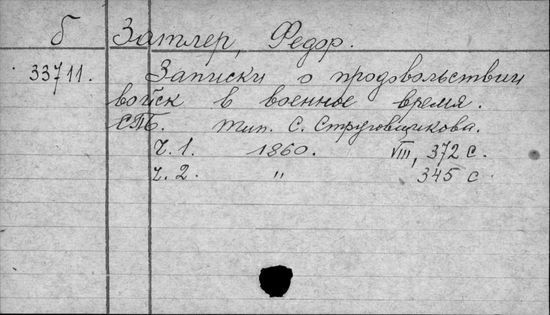 б Затлер, Федор.
33711. Записки о продовольствии
войск в военное время.
СПБ. Тип. С. Струговщикова.
Ч. 1. 1860. VIII, 372 с.
Ч. 2. " 345 с.